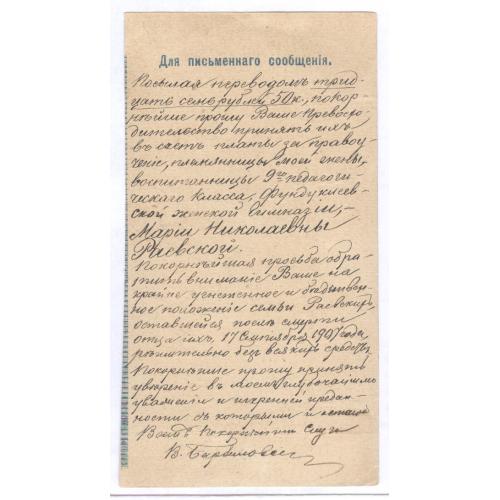 Для письменнаго сообщенія.
Посылая переводомъ трид-
цать семь рублей 50 к., покор-
нѣйше прошу Ваше Превосхо-
дительство принять ихъ
въ счетъ платы за правоу-
ченіе, племянницы моей жены,
воспитанницы 9го педагоги-
ческаго класса, Фундуклеев-
ской женской Гимназіи, -
Маріи Николаевны
Раевской.
Покорнѣйшая просьба обра-
тить вниманіе Ваше на
крайне стѣсненное и бѣдствен-
ное положеніе семьи Раевскихъ,
оставшейся послѣ смерти
отца ихъ, 17 Сентября 1907 года,
рѣшительно безъ всякихъ средствъ.
Покорнѣйше прошу принять
увѣреніе въ моемъ глубочайшемъ
уваженіи и искренней предан-
ности съ которыми и
Вашъ покорнѣйшій слуга
В.